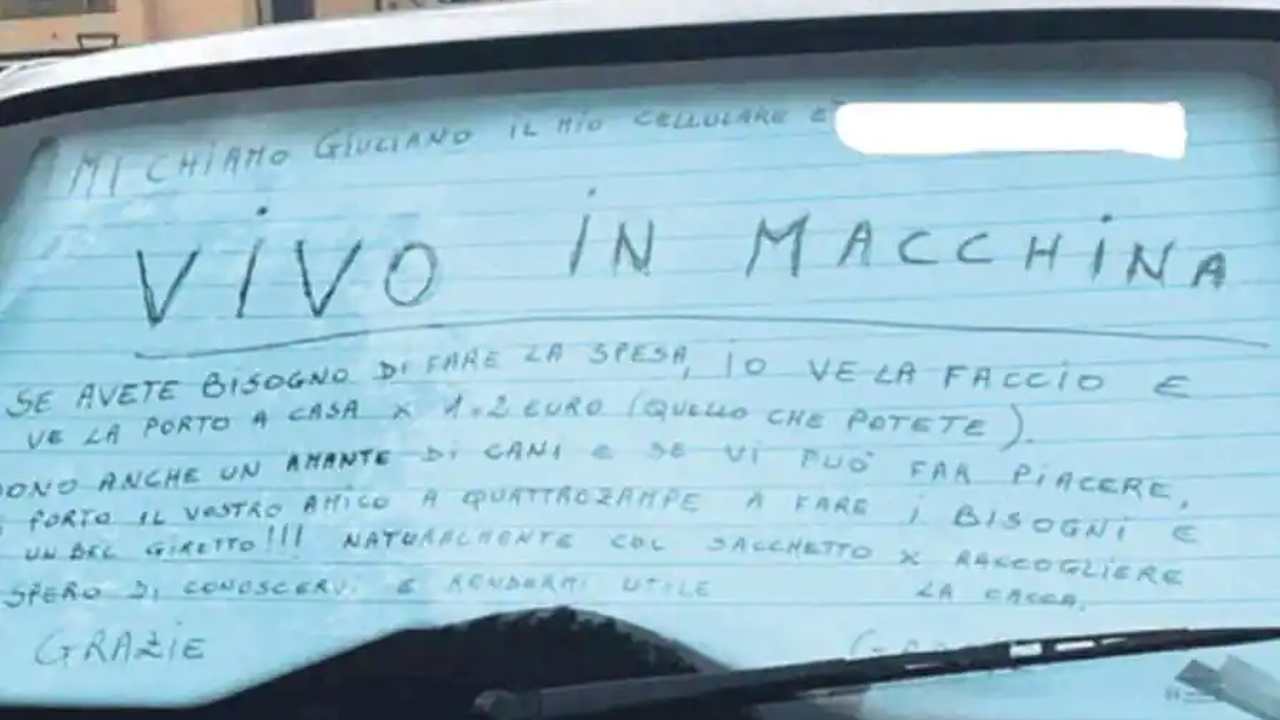 MI CHIAMO GIULIANO IL MIO CELLULARE E'
VIVO IN MACCHINA
SE AVETE BISOGNO DI FARE LA SPESA, IO VE LA FACCIO E
VE LA PORTO A CASA X 1.2 EURO (QUELLO CHE POTETE).
SONO ANCHE UN AMANTE DI CANI E SE VI PUÒ FAR PIACERE,
PORTO IL VOSTRO AMICO A QUATTROZAMPE A FARE I BISOGNI E
UN BEL GIRETTO!!! NATURALMENTE COL SACCHETTO X RACCOGLIERE
LA CACCA.
SPERO DI CONOSCERVI E RENDERMI UTILE
GRAZIE